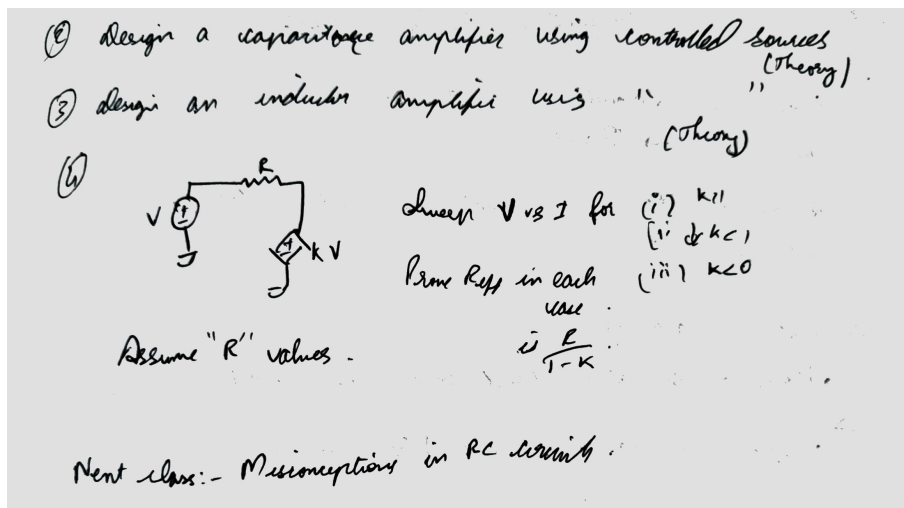 ② Design a capacitance amplifier using controlled sources
(Theory).
③ design an inductor amplifie using " "
(Theory)
④
R
V
+
-
+
-
k V
Sweep V vs I for (i) k>1
(ii) 0<k<1
(iii) k<0
Prove Reff in each
case.
is R/(1-K).
Assume "R" values.
Next class:- Misconceptions in RC circuits.